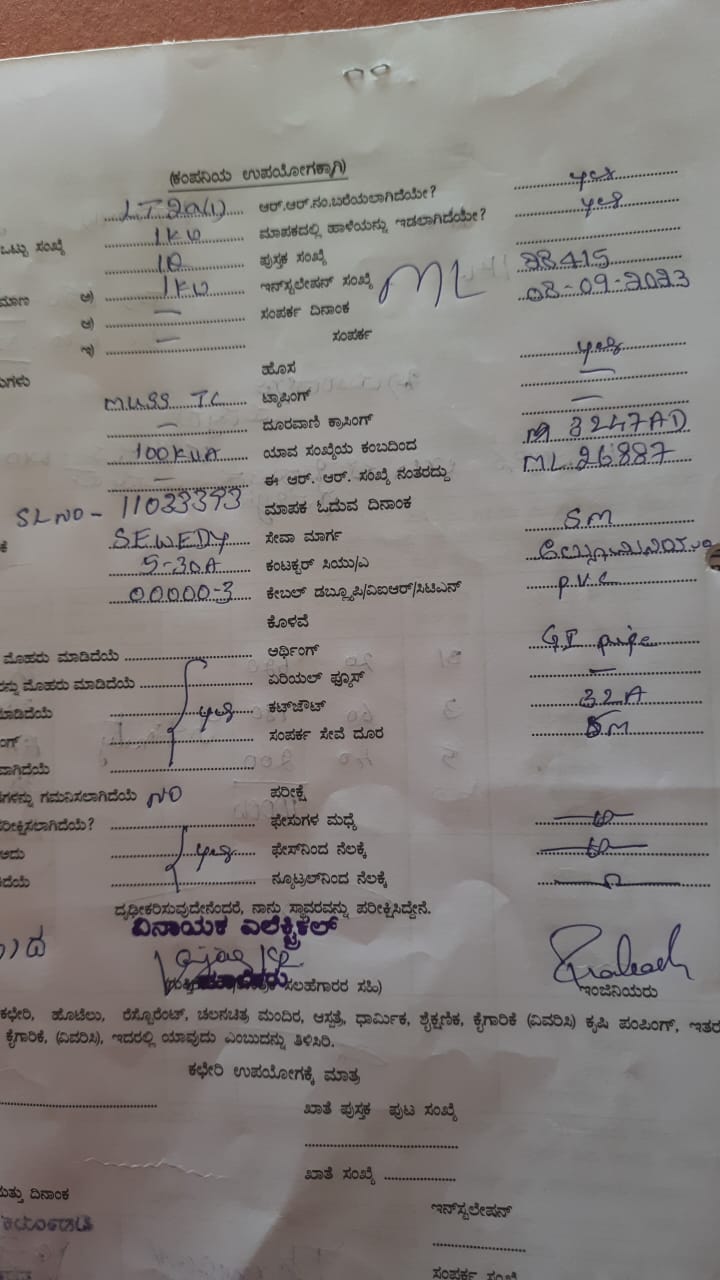 (ಕಂಪನಿಯ ಉಪಯೋಗಕ್ಕಾಗಿ)
LT2A(1) ಆರ್.ಆರ್.ನಂ.ಬರೆಯಲಾಗಿದೆಯೇ? yes
ಒಟ್ಟು ಸಂಖ್ಯೆ 1KW ಮಾಪಕದಲ್ಲಿ ಹಾಳೆಯನ್ನು ಇಡಲಾಗಿದೆಯೇ? yes
ಪುಸ್ತಕ ಸಂಖ್ಯೆ
ಮಾಣ ಅ) 1KW ಇನ್‌ಸ್ಟಲೇಷನ್ ಸಂಖ್ಯೆ ML 28415
ಆ) — ಸಂಪರ್ಕ ದಿನಾಂಕ 08-09-2023
ಇ) — ಸಂಪರ್ಕ
ಹೊಸ yes
MUSS TC ಟ್ಯಾಪಿಂಗ್ —
— ದೂರವಾಣಿ ಕ್ರಾಸಿಂಗ್ —
100KVA ಯಾವ ಸಂಖ್ಯೆಯ ಕಂಬದಿಂದ 3247AD
— ಈ ಆರ್. ಆರ್. ಸಂಖ್ಯೆ ನಂತರದ್ದು ML 26887
SL NO - 11033393 ಮಾಪಕ ಓದುವ ದಿನಾಂಕ
SEWEDY ಸೇವಾ ಮಾರ್ಗ 5M
5-30A ಕಂಟಕ್ಟರ್ ಸಿಯು/ಎ
00000-3 ಕೇಬಲ್ ಡಬ್ಲ್ಯೂಪಿ/ವಿಐಆರ್/ಸಿಟಿಎನ್ p.v.c
ಕೊಳವೆ
ಮೊಹರು ಮಾಡಿದೆಯೆ ಆರ್ಥಿಂಗ್ GI pipe
ರನ್ನು ಮೊಹರು ಮಾಡಿದೆಯೆ ಏರಿಯಲ್ ಫ್ಯೂಸ್ —
ಮಾಡಿದೆಯೆ yes ಕಟ್‌ಔಟ್ 32A
ಂಗ್ ಸಂಪರ್ಕ ಸೇವೆ ದೂರ 5M
ವಾಗಿದೆಯೆ
ಗಳನ್ನು ಗಮನಿಸಲಾಗಿದೆಯೆ NO ಪರೀಕ್ಷೆ
ರೀಕ್ಷಿಸಲಾಗಿದೆಯೆ? ಫೇಸುಗಳ ಮಧ್ಯೆ
ಅದು yes ಫೇಸ್‌ನಿಂದ ನೆಲಕ್ಕೆ
ದೆಯೆ ನ್ಯೂಟ್ರಲ್‌ನಿಂದ ನೆಲಕ್ಕೆ
ದೃಢೀಕರಿಸುವುದೇನೆಂದರೆ, ನಾನು ಸ್ಥಾವರವನ್ನು ಪರೀಕ್ಷಿಸಿದ್ದೇನೆ.
ವಿನಾಯಕ ಎಲೆಕ್ಟ್ರಿಕಲ್
ಸಲಹೆಗಾರರ ಸಹಿ) ಇಂಜಿನಿಯರು
ಕಛೇರಿ, ಹೊಟೆಲು, ರೆಸ್ಟೊರೆಂಟ್, ಚಲನಚಿತ್ರ ಮಂದಿರ, ಆಸ್ಪತ್ರೆ, ಧಾರ್ಮಿಕ, ಶೈಕ್ಷಣಿಕ, ಕೈಗಾರಿಕೆ (ವಿವರಿಸಿ) ಕೃಷಿ ಪಂಪಿಂಗ್, ಇತರ
ಕೈಗಾರಿಕೆ, (ವಿವರಿಸಿ), ಇದರಲ್ಲಿ ಯಾವುದು ಎಂಬುದನ್ನು ತಿಳಿಸಿರಿ.
ಕಛೇರಿ ಉಪಯೋಗಕ್ಕೆ ಮಾತ್ರ
ಖಾತೆ ಪುಸ್ತಕ ಪುಟ ಸಂಖ್ಯೆ
ಖಾತೆ ಸಂಖ್ಯೆ
ಮತ್ತು ದಿನಾಂಕ
ಇನ್‌ಸ್ಟಲೇಷನ್
ಸಂಪರ್ಕ ಸಂಖ್ಯೆ